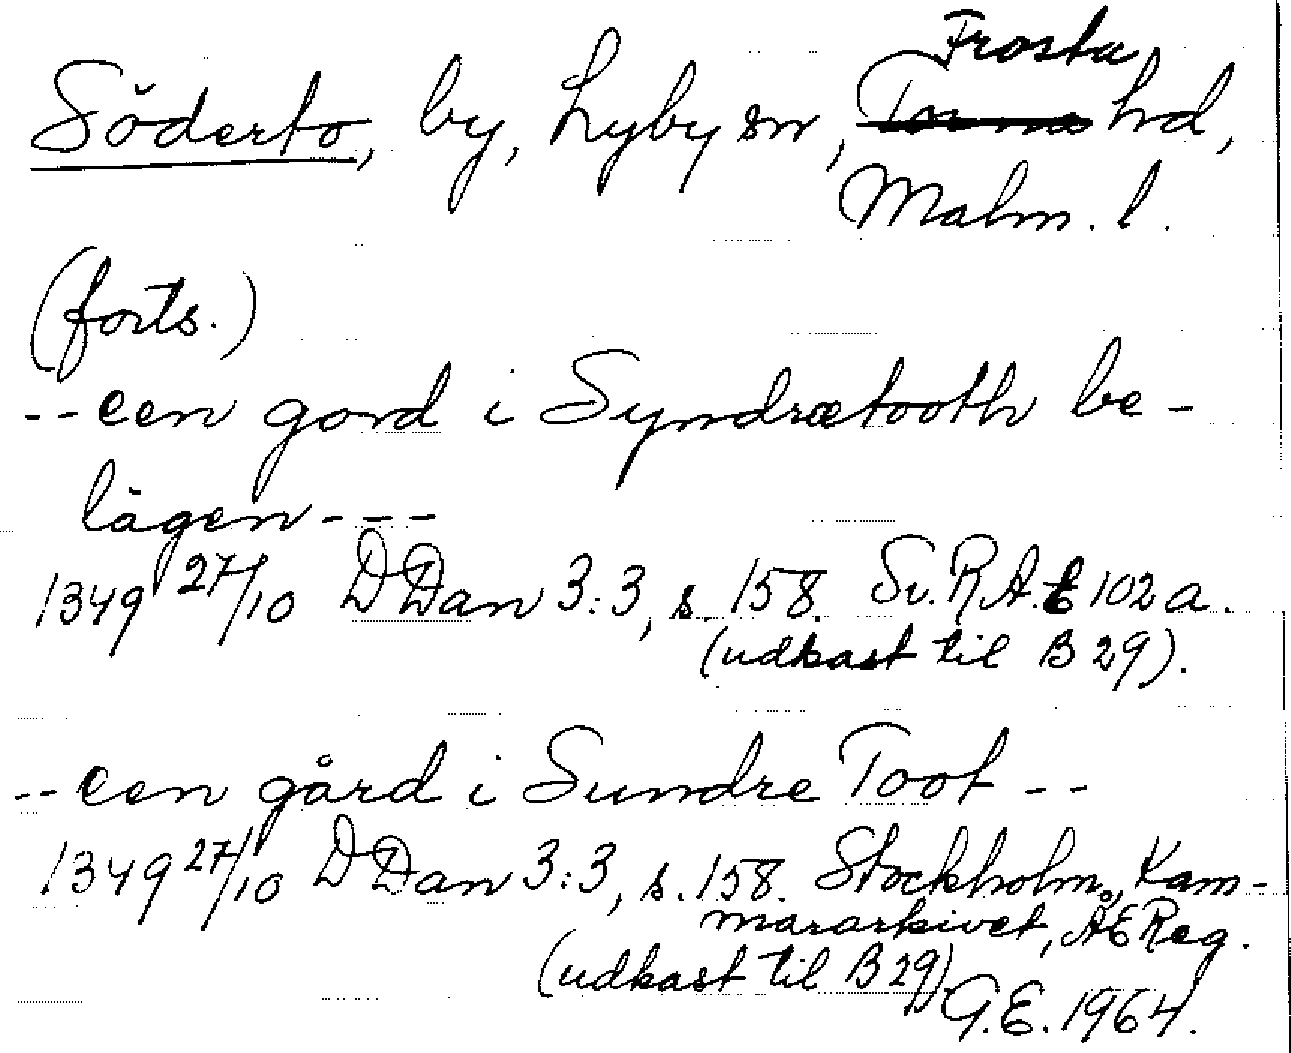 Frosta
Söderto, by, Lyby sn, Torna hd,
Malm. l.
(forts.)
-- een gord i Syndrætooth be-
lägen - - -
1349 27/10 DDan 3:3, s. 158. Sv.R.A. E 102 a.
(udkast til B 29).
-- een gård i Sundre Toot --
1349 27/10 DDan 3:3, s. 158. Stockholm, Kam-
mararkivet, ÅEReg.
(udkast til B 29)
G.E. 1964.